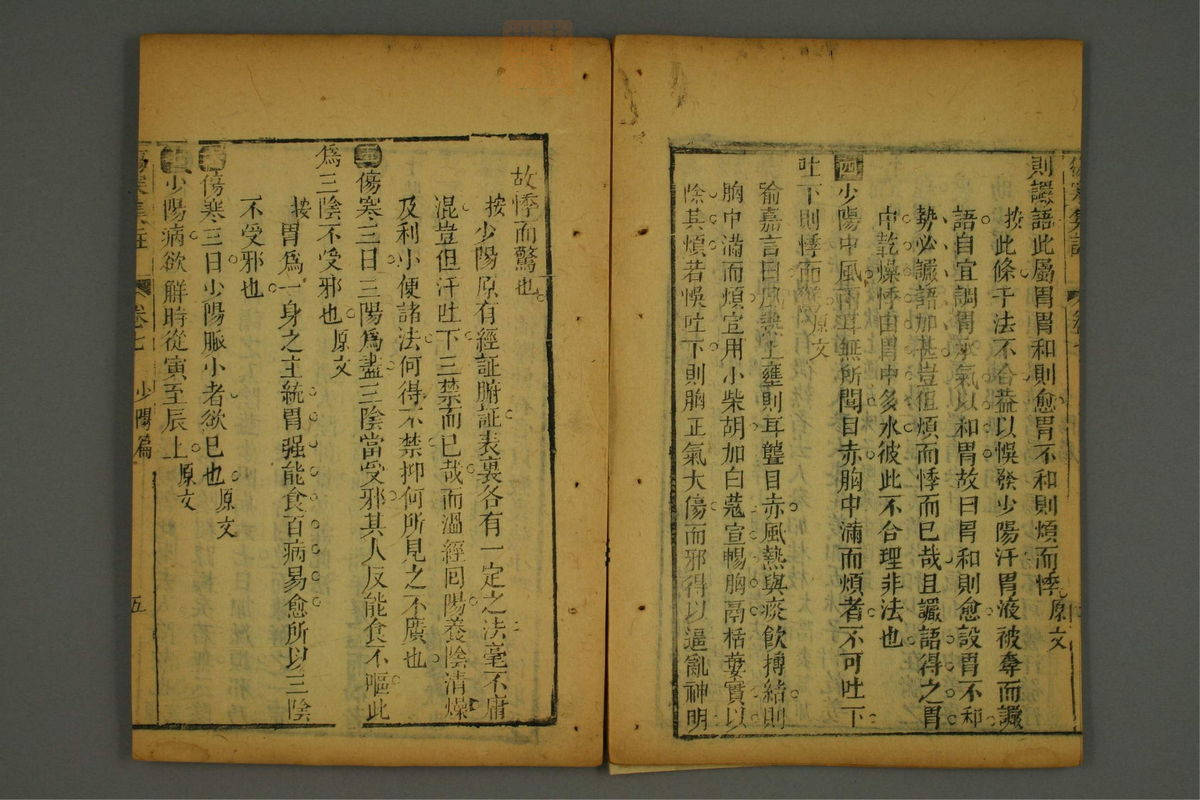 則譫語此屬胃胃和則愈胃不和則煩而悸原文
按此條于法不合葢以悞發少陽汗胃液被奪而譫
語自宜調胃承氣以和胃故曰胃和則愈設胃不和
勢必譫語加甚豈徂煩而悸而已哉且譫語得之胃
中乾燥悸由胃中多水彼此不合理非法也
四少陽中風兩耳無所聞目赤胸中滿而煩者不可吐下
吐下則悸而原文
喻嘉言曰風熱上壅則耳聾目赤風熱與痰飲摶結則
胸中滿而煩宜用小柴胡加白蔻宣暢胸鬲栝蔞實以
除其煩若悞吐下則胸正氣大傷而邪得以逼亂神明
故悸而驚也
按少陽原有經証腑証表裏各有一定之法毫不庸
混豈但汗吐下三禁而已哉而溫經囘陽養陰清燥
及利小便諸法何得不禁抑何所見之不廣也
五傷寒三日三陽爲盡三陰當受邪其人反能食不嘔此
爲三陰不受邪也原文
按胃爲一身之主統胃强能食百病易愈所以三陰
不受邪也
六傷寒三日少陽脈小者欲巳也原文
七少陽病欲解時從寅至辰上原文
傷寒集註 卷七 少陽篇 五